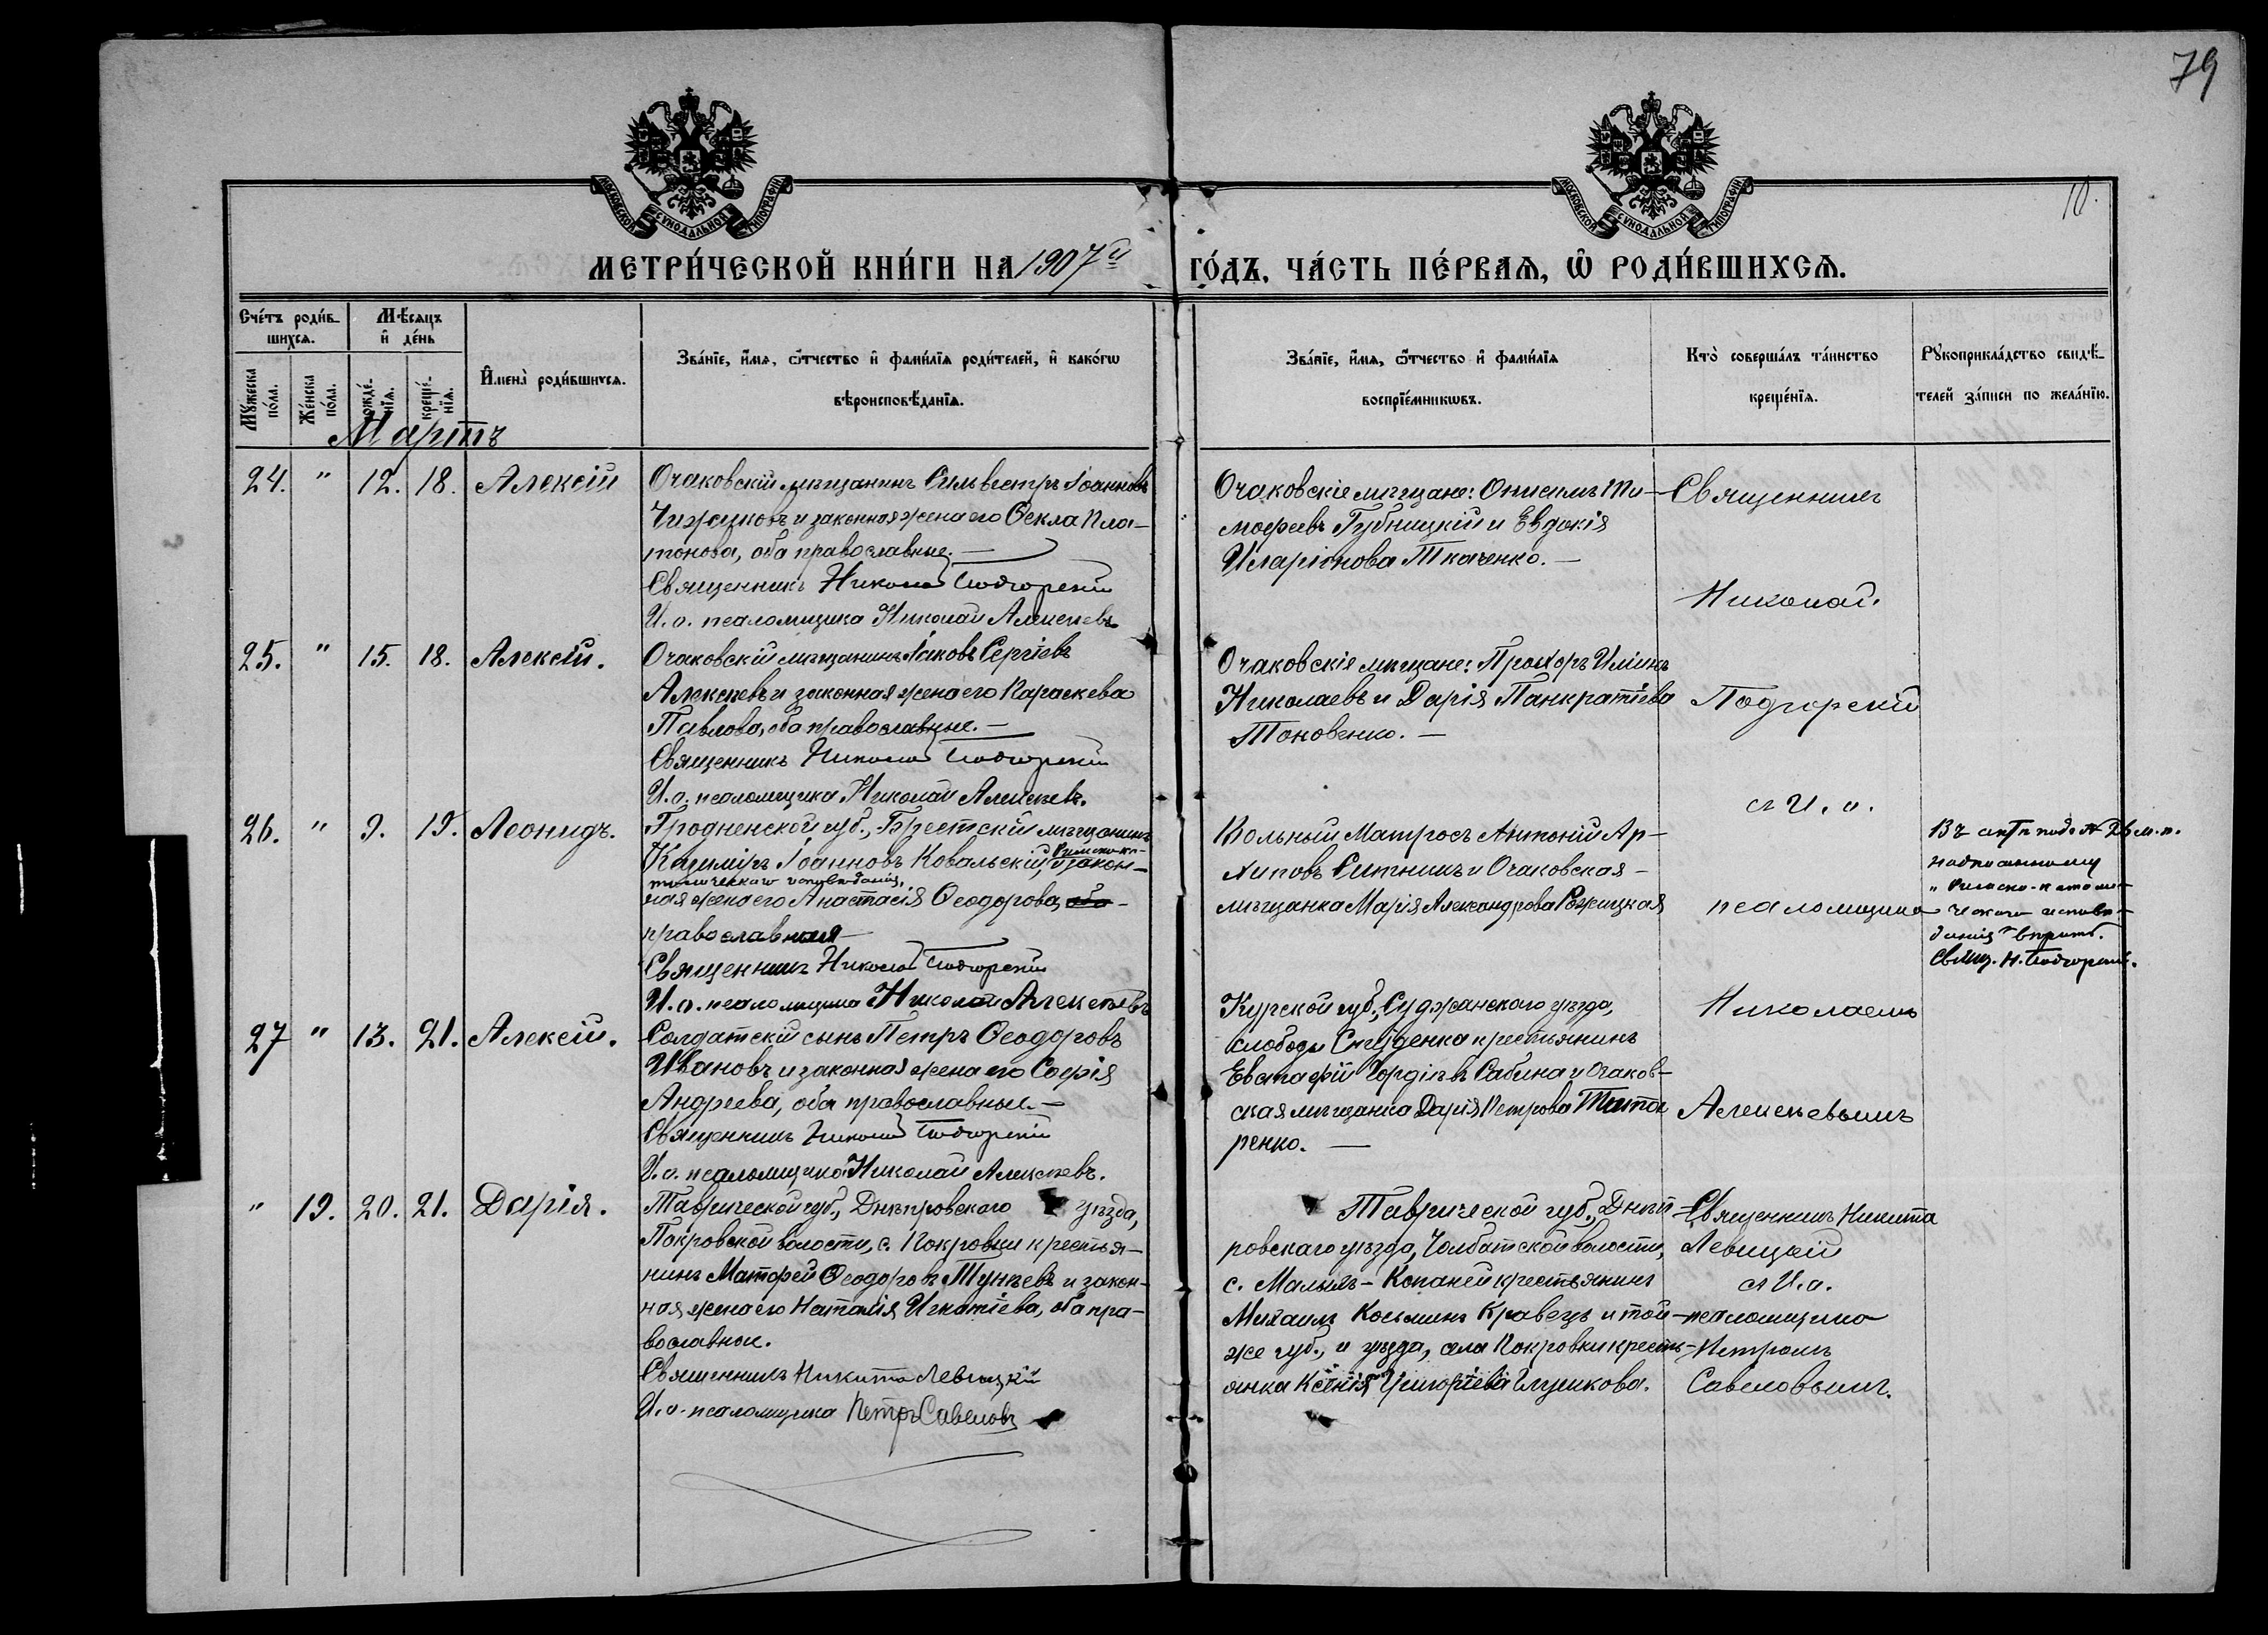 79
10.
МОСКОВСКОЙ СѴНОДАЛЬНОЙ ТИПОГРАФІИ
МОСКОВСКОЙ СѴНОДАЛЬНОЙ ТИПОГРАФІИ
МЕТРИ́ЧЕСКОЙ КНИ́ГИ НА 1907й ГО́ДЪ. ЧА́СТЬ ПЕ́РВАѦ, Ѽ РОДИ́ВШИХСѦ.
Сче́тъ роди́в-
шихсѧ.
Мѣ́сѧцъ
и де́нь
Мꙋ́жеска по́ла.
Же́нска по́ла.
рожде́-нїѧ.
креще́-нїѧ.
И҆мена̀ роди́вшихсѧ.
Зва́нїе, и҆́мѧ, ѻ҆́тчество и҆ фами́лїѧ роди́телей, и҆ како́гѡ
вѣроисповѣ́данїѧ.
Зва́нїе, и҆́мѧ, ѻ҆́тчество и҆ фами́лїѧ
воспрїе́мникѡвъ.
Кто̀ соверша́лъ та́инство
креще́нїѧ.
Рꙋкоприкла́дство свидѣ́-
телей за́писи по жела́нїю.
Мартъ
24. " 12. 18. Алексій
Очаковскій мѣщанинъ Сильвестръ Іоанновъ
Чижиковъ и законная жена его Ѳекла Пла-
тонова, оба православные.—
Священникъ Николай Подгорскій
И.о. псаломщика Николай Алексѣевъ
Очаковскіе мѣщане: Онисимъ Ти-
мофеевъ Губницкій и Евдокія
Иларіонова Ткаченко.—
Священникъ
Николай
25. " 15. 18. Алексій.
Очаковскій мѣщанинъ Іаковъ Сергіевъ
Алексѣевъ и законная жена его Параскева
Павлова, оба православные.—
Священникъ Николай Подгорскій
И.о. псаломщика Николай Алексѣевъ.
Очаковскіе мѣщане: Прохоръ Ильинъ
Николаевъ и Дарія Панкратіева
Тоновенко.—
Подгорскій
съ И.о.
26. " 9. 19. Леонидъ.
Гродненской губ., Брестскій мѣщанинъ
Казиміръ Іоанновъ Ковальскій, Римско-ка-
толическаго исповѣданія, и закон-
ная жена его Анастасія Ѳеодорова, оба
православная—
Священникъ Николай Подгорскій
И.о. псаломщика Николай Алексѣевъ
Вольный Матросъ Антоній Ар-
хиповъ Ситникъ и Очаковская
мѣщанка Марія Александрова Рожицкая
псаломщика
Въ актѣ подъ № 26 м.п.
надписанному
"Римско-католи-
ческаго исповѣ-
данія" вѣрить.
Свящ. Н. Подгорскій.
27 " 13. 21. Алексій.
Солдатскій сынъ Петръ Ѳеодоровъ
Ивановъ и законная жена его Софія
Андреева, оба православные.—
Священникъ Николай Подгорскій
И.о. псаломщика Николай Алексѣевъ.
Курской губ., Суджанского уѣзда,
слободы Студенка крестьянинъ
Евстафій Гордіевъ Сабина и Очаков-
ская мѣщанка Дарія Петрова Тита
ренко.—
Николаемъ
Алексѣевымъ
" 19. 20. 21. Дарія.
Таврической губ., Днѣпровскаго уѣзда,
Покровской волости, с. Покровки крестья-
нинъ Матфей Ѳеодоровъ Тунѣевъ и закон-
ная жена его Наталія Игнатіева, оба пра-
вославные.
Священникъ Никита Левицкій
И.о. псаломщика Петръ Савеловъ
Таврической губ., Днѣп-
ровскаго уѣзда, Чолбатской волости,
с. Малыхъ-Копаней крестьянинъ
Михаилъ Косьминъ Кравецъ и той
же губ., и уѣзда, села Покровки кресть-
янка Ксенія Григоріева Глушкова.
Священникъ Никита
Левицкій
съ И.о.
псаломщика
Петромъ
Савеловымъ.